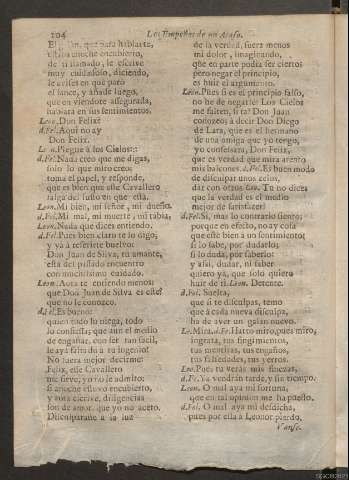 104 Los Empeños de un Acaso.
que para hablarte,
noche encubierto,
de ti llamado, le escrive
muy cuidadoso, diciendo,
le avises en qué paró
el lance, y añade luego,
que en viendote assegurada,
hablará en sus sentimientos.
Leon. Don Felix?
d.Fel. Aqui no ay
Don Felix.
Leon. Plegue à los Cielos::
d.Fel. Nada creo que me digas,
solo lo que miro creo:
toma el papel, y responde,
que es bien que esse Cavallero
salga del susto en que està.
Leon. Mi bien, mi señor, mi dueño.
d.Fel. Mi mal, mi muerte, mi rabia,
Leon. Nada que dices entiendo.
d.Fel. Pues bien claro te lo digo;
y yà à referirte buelvo:
Don Juan de Silva, tu amante,
està del passado encuentro
con muchissimo cuidado.
Leon. Aora te entiendo menos:
que Don Juan de Silva es esse?
que no le conozco.
d.Fel. Es bueno:
quien todo lo niega, todo
lo confiessa; que aun el medio
de engañar, con ser tan facil,
le aya faltado à tu ingenio!
No fuera mejor decirme:
Felix, esse Cavallero
me sirve, yo no le admito;
si anoche estuvo encubierto,
y aora escrive, diligencias
son de amor, que yo no aceto.
Disculparate à la luz
de la verdad, fuera menos
mi dolor, imaginando,
que en parte podia ser cierto;
pero negar el principio,
es huir el argumento.
Leon. Pues si es el principio falso,
no he de negarle? Los Cielos
me falten, si tal Don Juan
conozco; à decir Don Diego
de Lara, que es el hermano
de una amiga que yo tengo,
yo confessara, Don Felix,
que es verdad que mira atento
mis balcones. d.Fel. Es buen modo
de disculpar unos zelos,
dar con otros. Leon. Tu no dices
que la verdad es el medio
mejor de satisfacer?
d.Fel. Si, mas lo contrario siento;
porque en efecto, no ay cosa
que estè bien à un sentimiento;
si lo sabe, por dudarlo;
si lo duda, por saberlo:
y assi, dudar, ni saber
quiero yà, que solo quiero
huir de ti. Leon. Detente.
d.Fel. Suelta,
que si te disculpas, temo
que à cada nueva disculpa,
ha de aver un galan nuevo.
Le. Mira. d.Fe. Harto miro, pues miro,
ingrata, tus fingimientos,
tus mentiras, tus engaños,
tus falsedades, tus yerros.
Leo. Pues tu veràs mis finezas,
d.Fe. Ya vendràn tarde, y sin tiempo.
Leon. O mal aya mi fortuna,
que en tal opinion me ha puesto.
d.Fel. O mal aya mi desdicha,
pues por ella à Leonor pierdo.
Vanse.